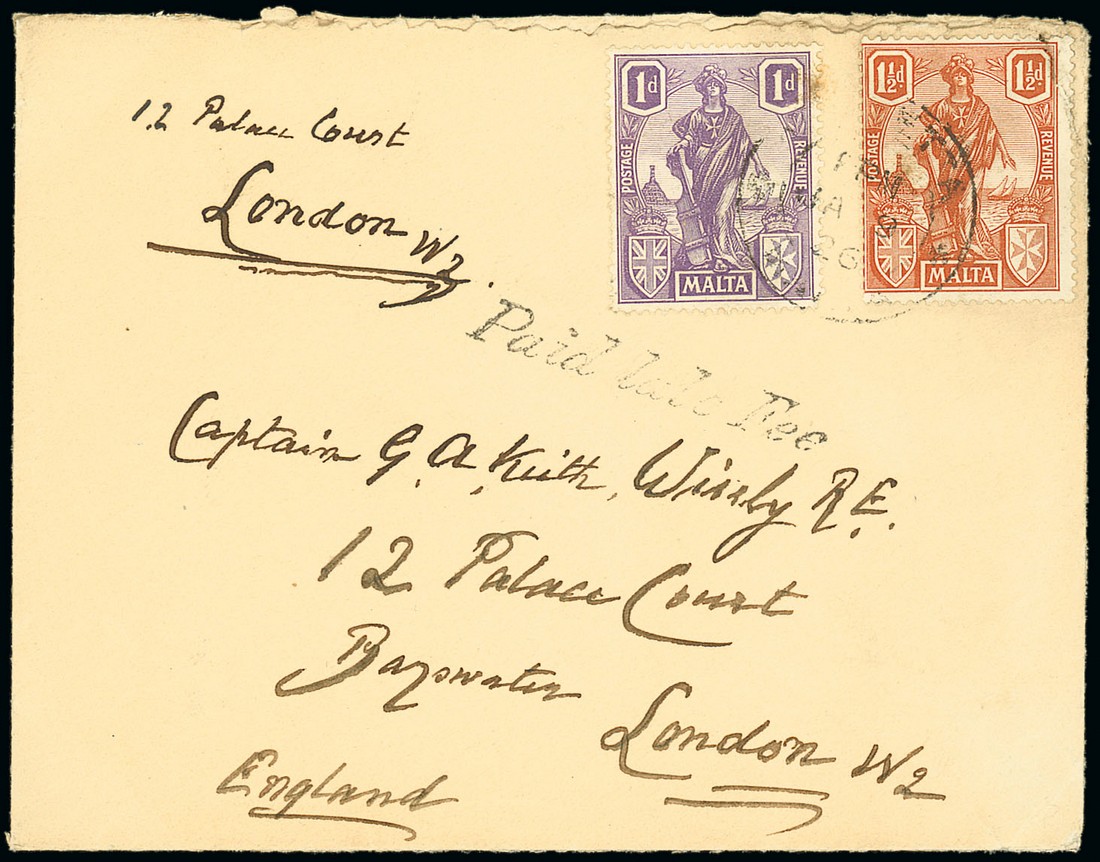 12 Palace Court
London W2.
1d 1d
POSTAGE REVENUE
MALTA
1½d 1½d
POSTAGE REVENUE
MALTA
MA
26
Paid late Fee
Captain G. A. Keith, Wisely R.E.
12 Palace Court
Bayswater
London W2
England